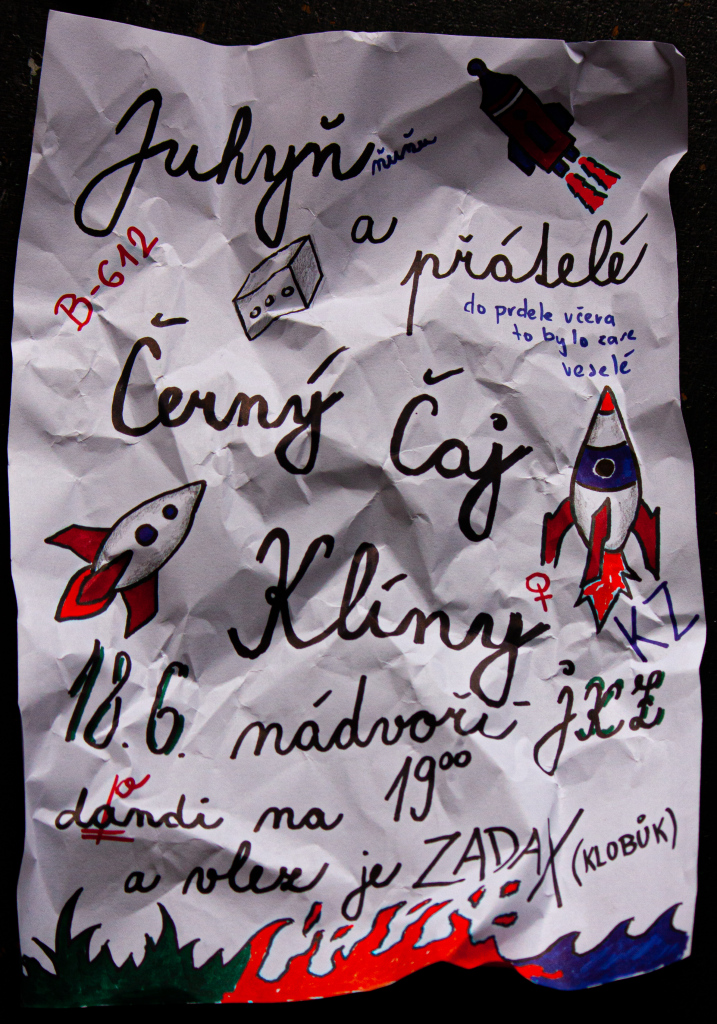 Juhyň
ňuňu
a
B-612
přátelé
do prdele včera
to bylo zase
veselé
Černý
Čaj
Klíny
♀
KZ
18.6. nádvoří JKZ
jo
dandi na 19⁰⁰
a vlez je ZADAX (KLOBŮK)